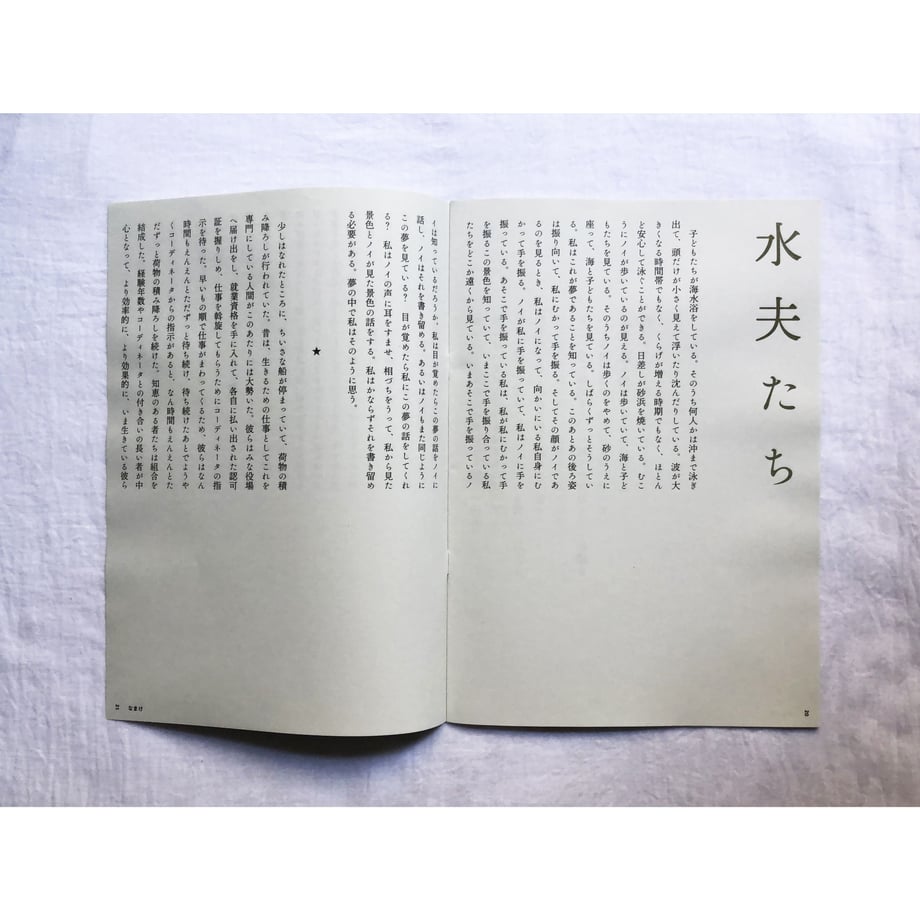 水夫たち
子どもたちが海水浴をしている。そのうち何人かは沖まで泳ぎ
出て、頭だけが小さく見えて浮いたり沈んだりしている。波が大
きくなる時間帯でもなく、くらげが増える時期でもなく、ほとん
ど安心して泳ぐことができる。日差しが砂浜を焼いている。むこ
うにノイが歩いているのが見える。ノイは歩いていて、海と子ど
もたちを見ている。そのうちノイは歩くのをやめて、砂のうえに
座って、海と子どもたちを見ている。しばらくずっとそうしてい
る。私はこれが夢であることを知っている。このあとあの後ろ姿
は振り向いて、私にむかって手を振る。そしてその顔がノイであ
るのを見るとき、私はノイになって、向かいにいる私自身にむ
かって手を振る。ノイが私に手を振っていて、私はノイに手を
振っている。あそこで手を振っている私は、私が私にむかって手
を振るこの景色を知っていて、いまここで手を振り合っている私
たちをどこか遠くから見ている。いまあそこで手を振っているノ
20
イは知っているだろうか。私は目が覚めたらこの夢の話をノイに
話し、ノイはそれを書き留める。あるいはノイもまた同じように
この夢を見ている？　目が覚めたら私にこの夢の話をしてくれ
る？　私はノイの声に耳をすませ、相づちをうって、私から見た
景色とノイが見た景色の話をする。私はかならずそれを書き留め
る必要がある。夢の中で私はそのように思う。
★
少しはなれたところに、ちいさな船が停まっていて、荷物の積
み降ろしが行われていた。昔は、生きるための仕事としてこれを
専門にしている人間がこのあたりには大勢いた。彼らはみな役場
へ届け出をし、就業資格を手に入れて、各自に払い出された認可
証を握りしめ、仕事を斡旋してもらうためにコーディネータの指
示を待った。早いもの順で仕事がまわってくるため、彼らはなん
時間もえんえんとただずっと待ち続け、待ち続けたあとでようや
くコーディネータからの指示があると、なん時間もえんえんとた
だずっと荷物の積み降ろしを続けた。知恵のある者たちは組合を
結成した。経験年数やコーディネータとの付き合いの長い者が中
心となって、より効率的に、より効果的に、いま生きている彼ら
21　なまけ